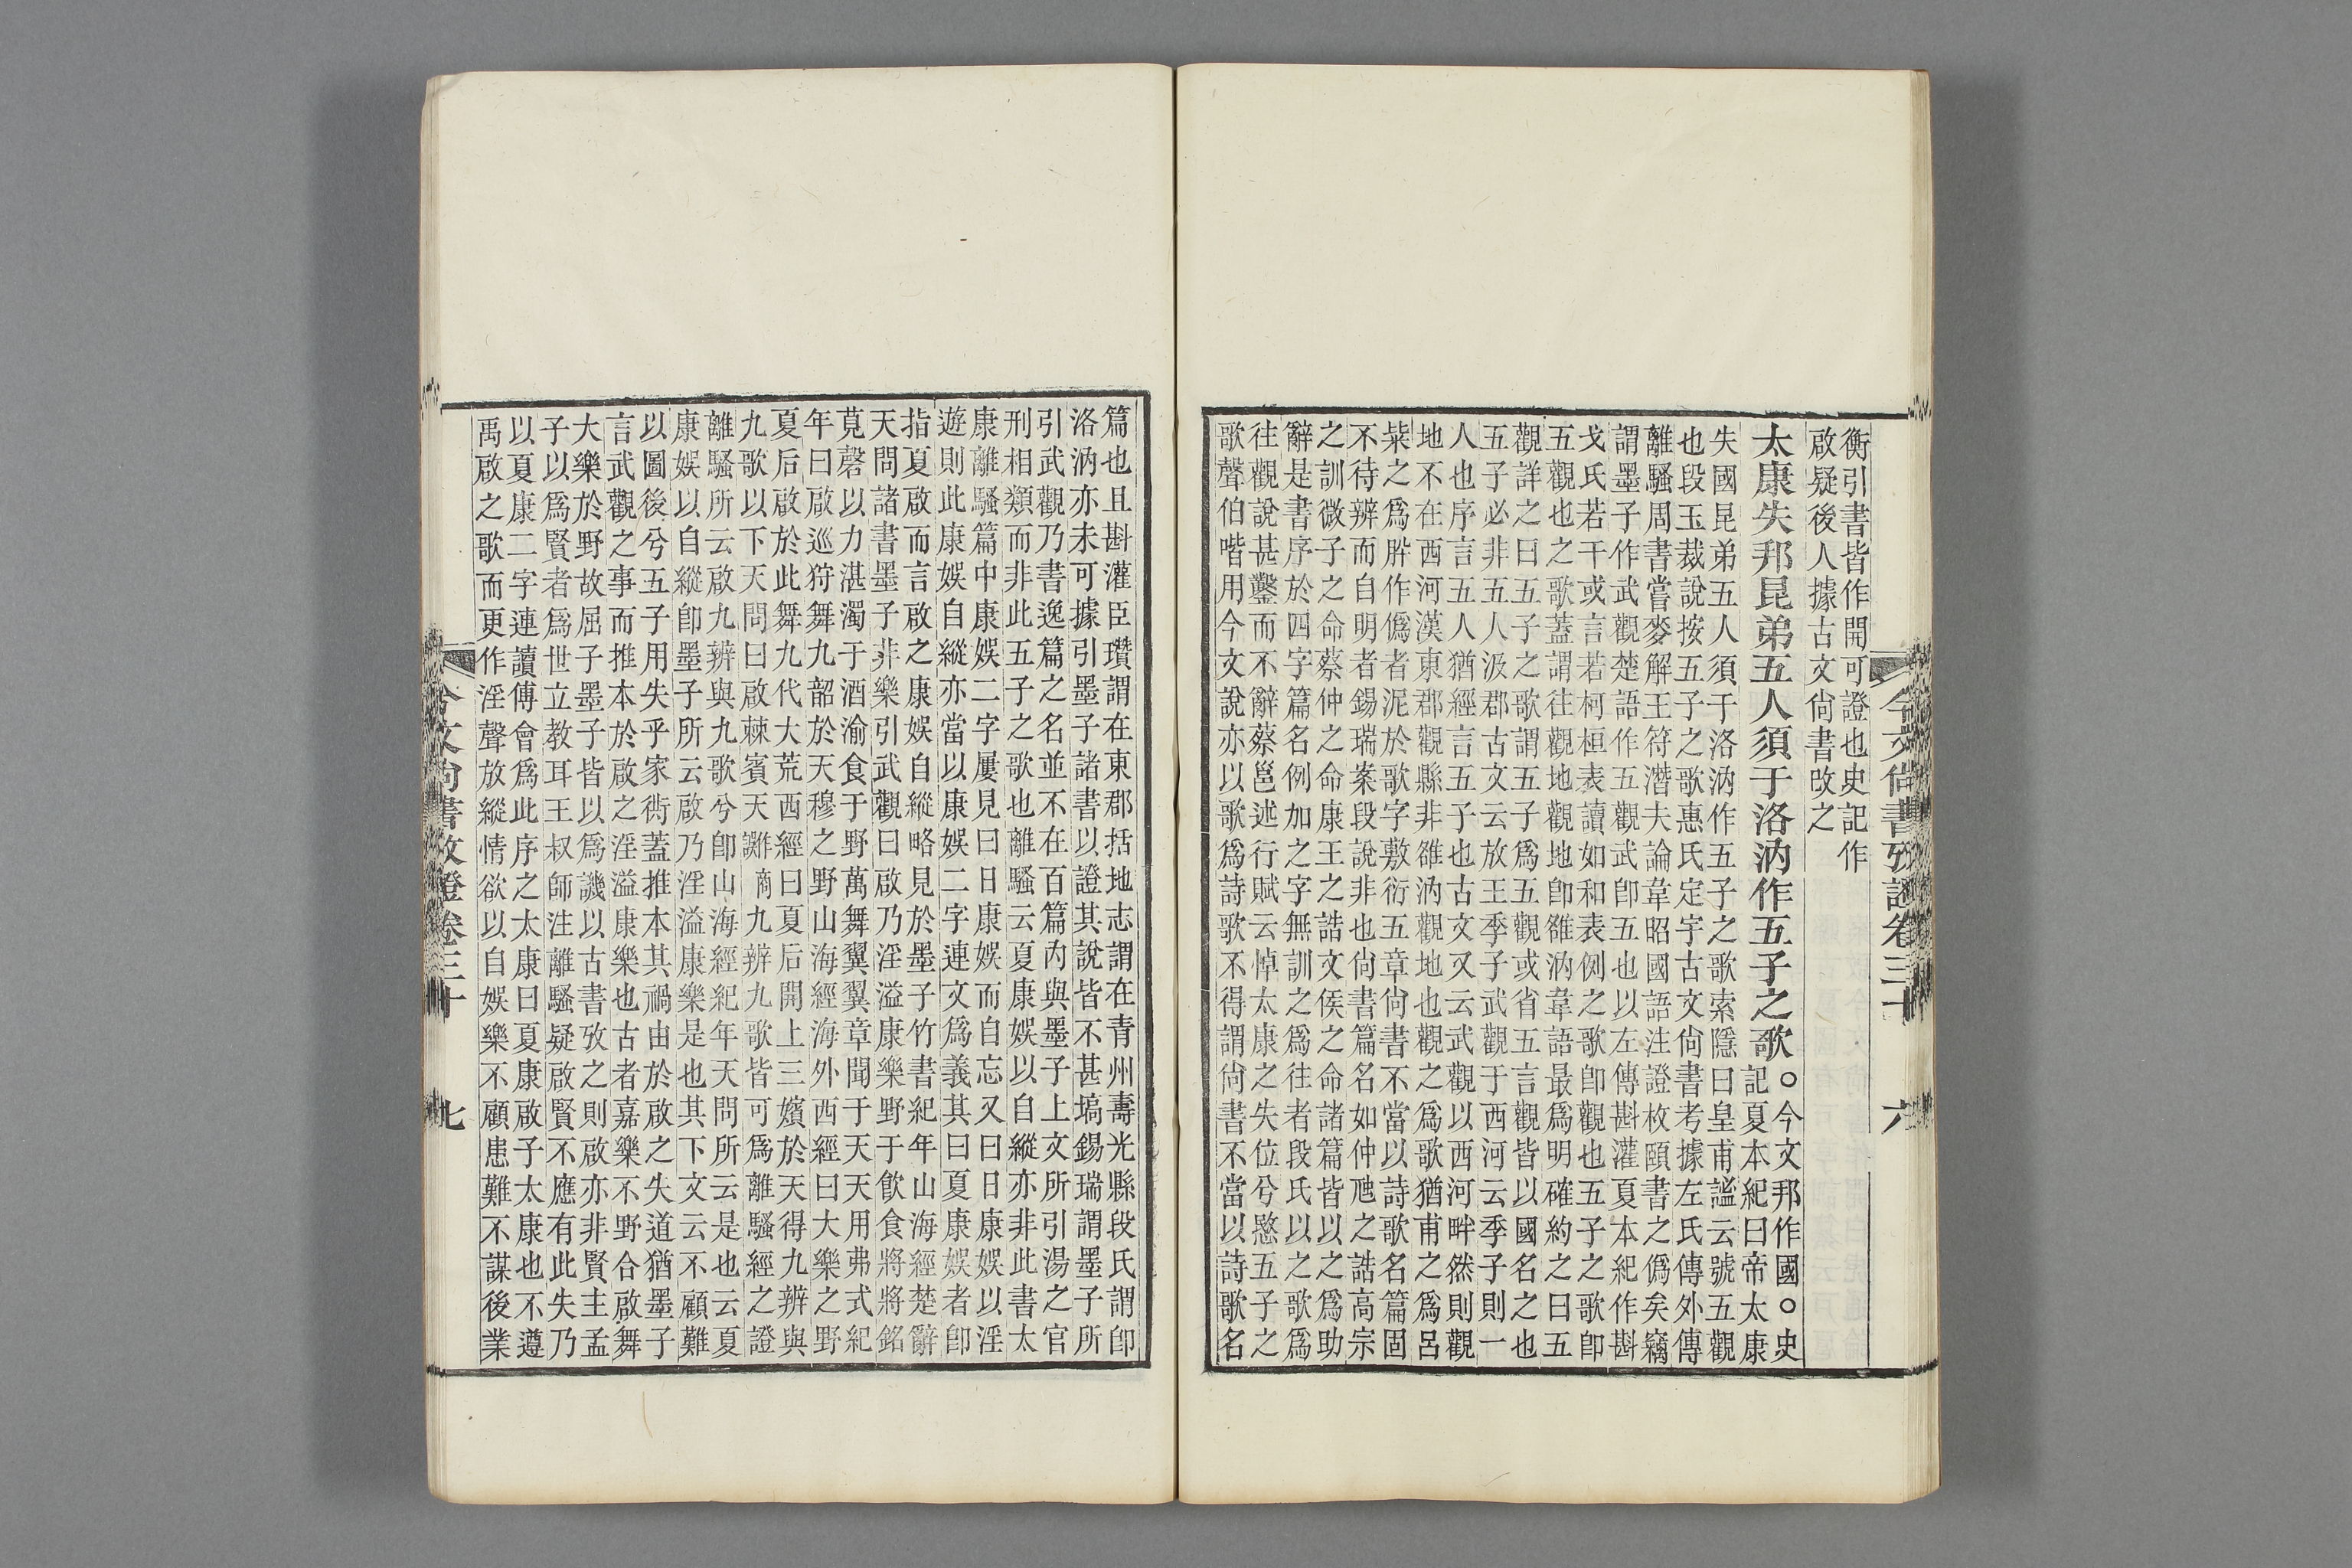 衡引書皆作開可證也史記作
啟疑後人據古文尙書改之
太康失邦昆弟五人須于洛汭作五子之歌
○今文邦作國○史
記夏本紀曰帝太康
失國昆弟五人須于洛汭作五子之歌索隱曰皇甫謐云號五觀
也段玉裁說按五子之歌惠氏定宇古文尙書考據左氏傳外傳
離騷周書嘗麥解王符潛夫論韋昭國語注證枚頤書之僞矣竊
謂墨子作武觀楚語作五觀武卽五也以左傳斟灌夏本紀作斟
戈氏若干或言若柯桓表讀如和表例之歌卽觀也五子之歌卽
五觀也之歌蓋謂往觀地觀地卽雒汭韋語最爲明確約之曰五
觀詳之曰五子之歌謂五子爲五觀或省五言觀皆以國名之也
五子必非五人汲郡古文云放王季子武觀于西河云季子則一
人也序言五人猶經言五子也古文又云武觀以西河畔然則觀
地不在西河漢東郡觀縣非雒汭觀地也觀之爲歌猶甫之爲呂
粊之爲肸作僞者泥於歌字敷衍五章尙書不當以詩歌名篇固
不待辨而自明者錫瑞案段說非也尙書篇名如仲虺之誥高宗
之訓微子之命蔡仲之命康王之誥文侯之命諸篇皆以之爲助
辭是書序於四字篇名例加之字無訓之爲往者段氏以之歌爲
往觀說甚鑿而不辭蔡邕述行賦云悼太康之失位兮愍五子之
歌聲伯喈用今文說亦以歌爲詩歌不得謂尙書不當以詩歌名
今文尙書攷證卷三十 六
篇也且斟灌臣瓚謂在東郡括地志謂在青州壽光縣段氏謂卽
洛汭亦未可據引墨子諸書以證其說皆不甚塙錫瑞謂墨子所
引武觀乃書逸篇之名並不在百篇內與墨子上文所引湯之官
刑相類而非此五子之歌也離騷云夏康娛以自縱亦非此書太
康離騷篇中康娛二字屢見曰日康娛而自忘又曰日康娛以淫
遊則此康娛自縱亦當以康娛二字連文爲義其曰夏康娛者卽
指夏啟而言啟之康娛自縱略見於墨子竹書紀年山海經楚辭
天問諸書墨子非樂引武觀曰啟乃淫溢康樂野于飮食將將銘
莧磬以力湛濁于酒渝食于野萬舞翼翼章聞于天天用弗式紀
年曰啟巡狩舞九韶於天穆之野山海經海外西經曰大樂之野
夏后啟於此舞九代大荒西經曰夏后開上三嬪於天得九辨與
九歌以下天問曰啟棘賓天謶商九辨九歌皆可爲離騷經之證
離騷所云啟九辨與九歌兮卽山海經紀年天問所云是也云夏
康娛以自縱卽墨子所云啟乃淫溢康樂是也其下文云不顧難
以圖後兮五子用失乎家衖蓋推本其禍由於啟之失道猶墨子
言武觀之事而推本於啟之淫溢康樂也古者嘉樂不野合啟舞
大樂於野故屈子墨子皆以爲譏以古書攷之則啟亦非賢主孟
子以爲賢者爲世立教耳王叔師注離騷疑啟賢不應有此失乃
以夏康二字連讀傅會爲此序之太康曰夏康啟子太康也不遵
禹啟之歌而更作淫聲放縱情欲以自娛樂不顧患難不謀後業
今文尙書攷證卷三十 七